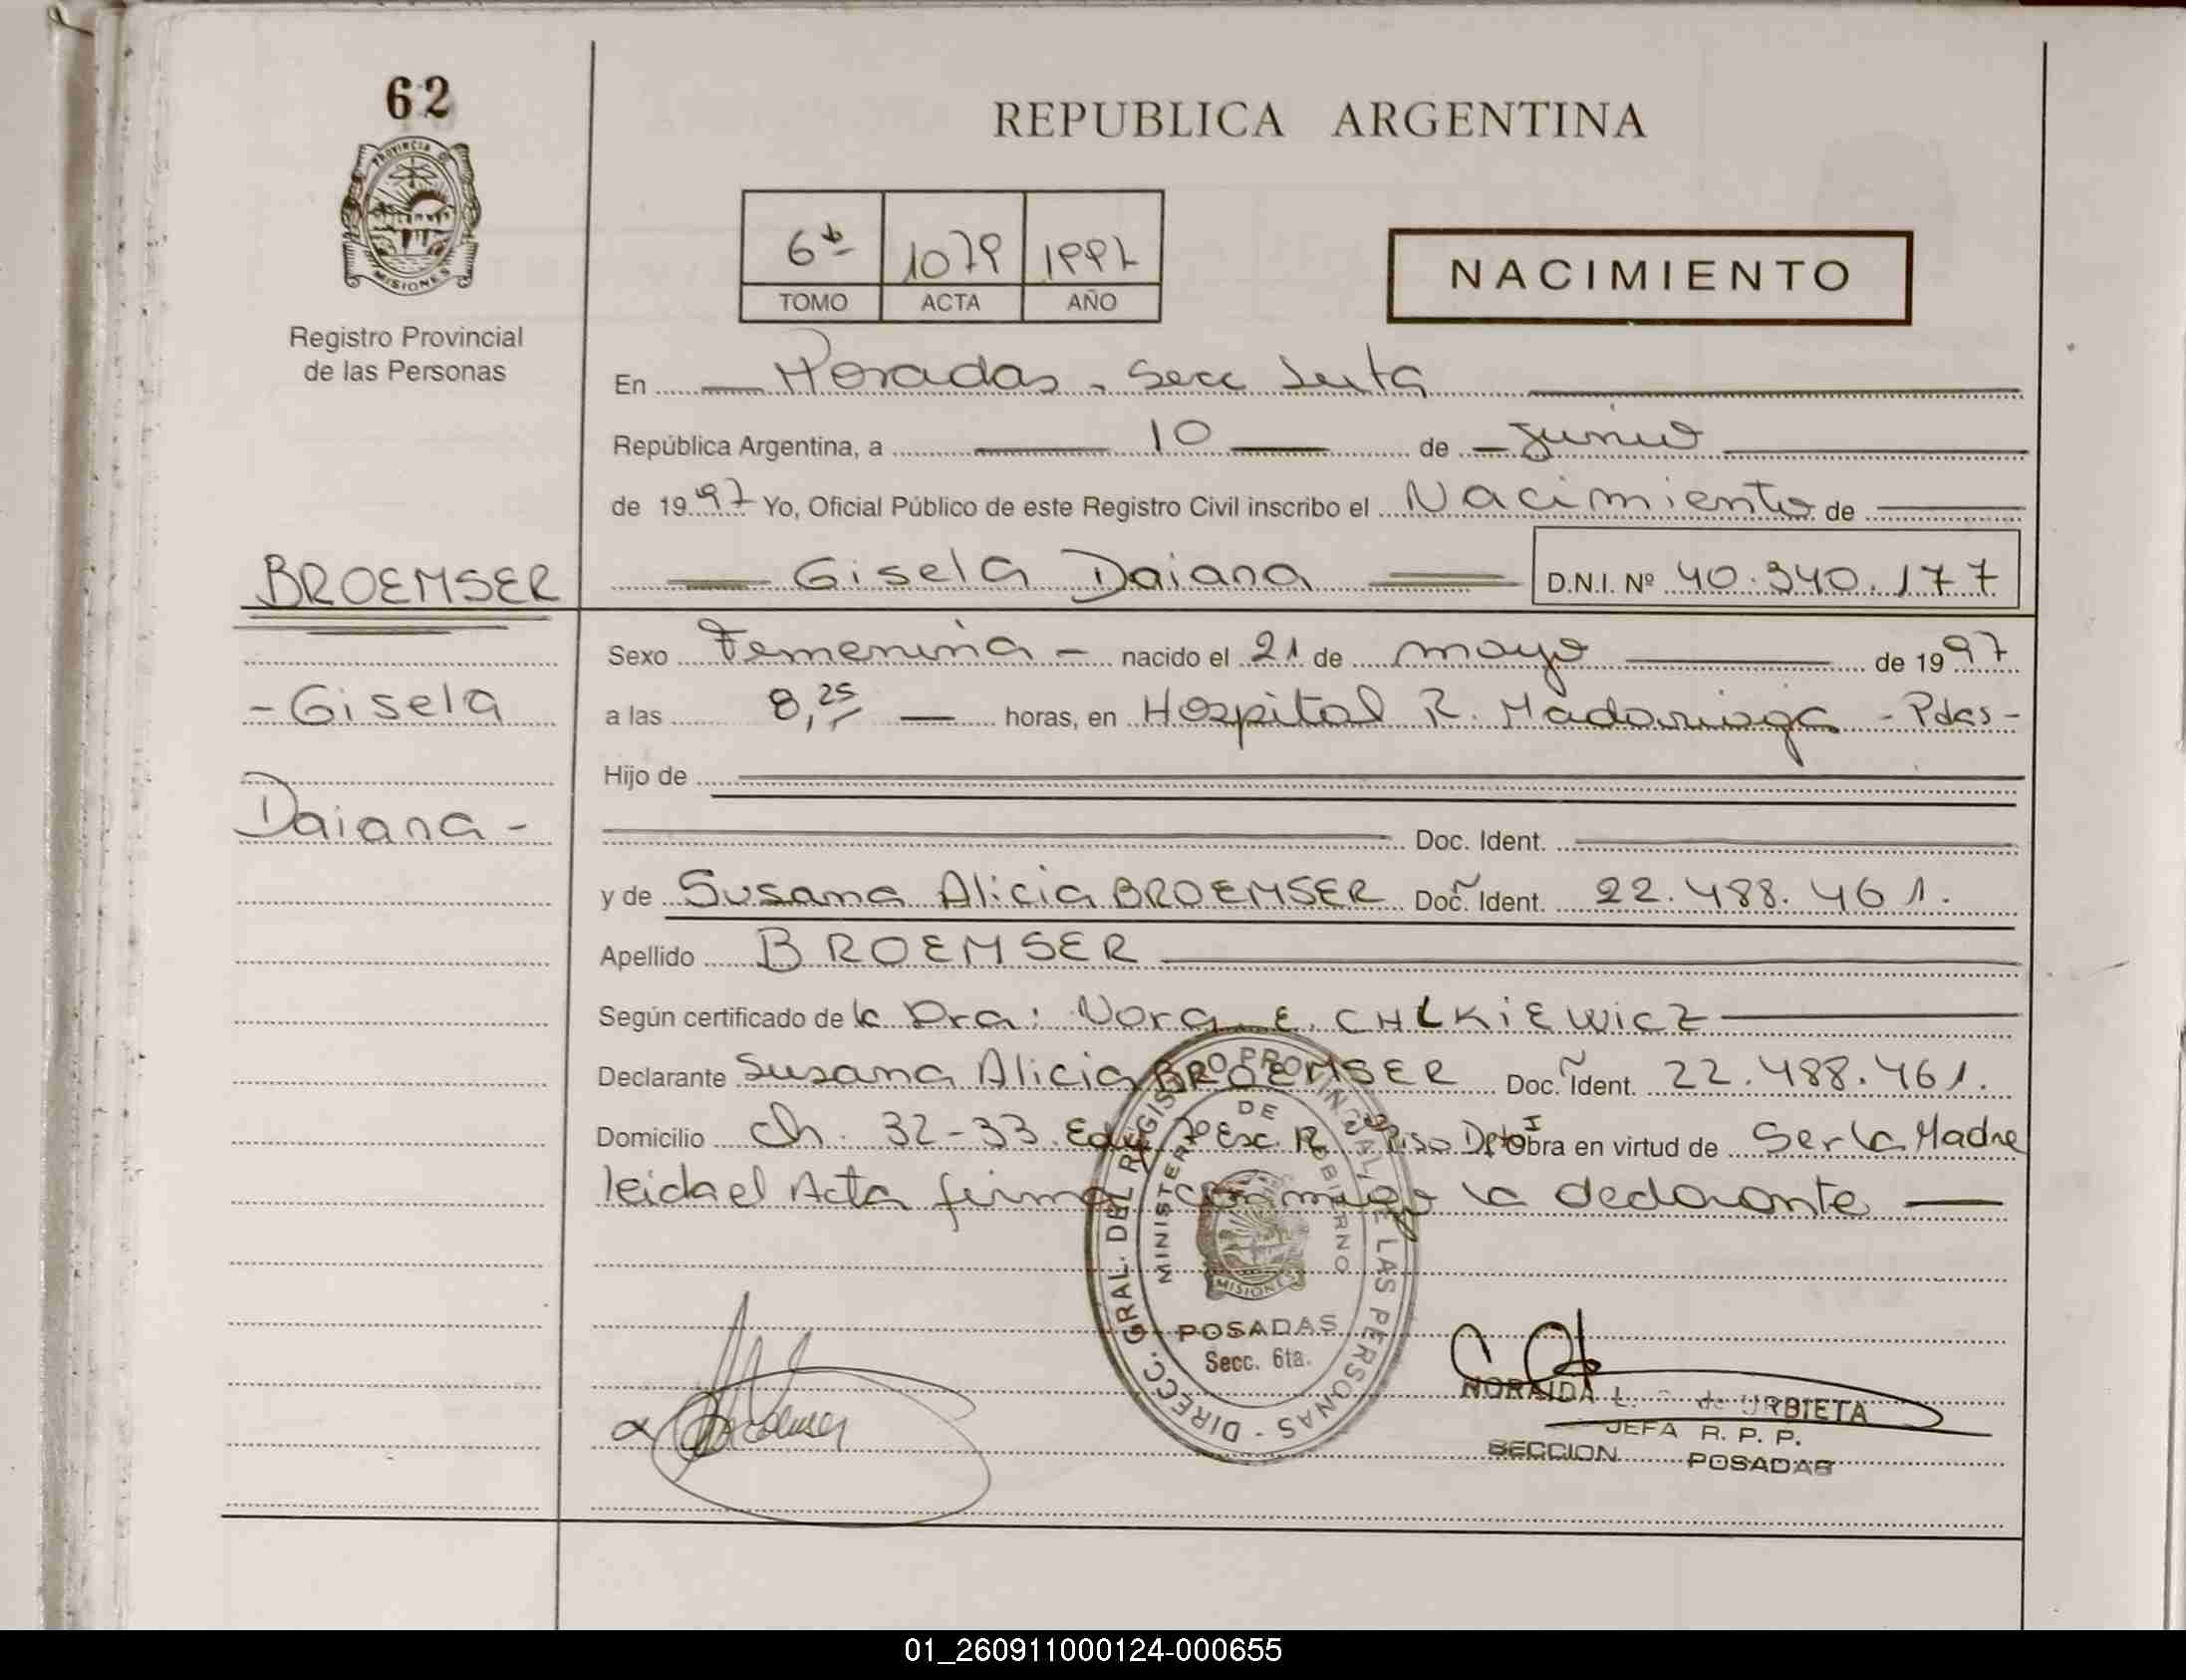 62
PROVINCIA DE
MISIONES
Registro Provincial
de las Personas
REPUBLICA ARGENTINA
6to 1079 1997
TOMO ACTA AÑO
NACIMIENTO
En Posadas - Secc Sexta
República Argentina, a 10 de junio
de 1997 Yo, Oficial Público de este Registro Civil inscribo el Nacimiento de
BROEMSER
- Gisela
Daiana -
Gisela Daiana D.N.I. Nº 40.340.177
Sexo Femenina - nacido el 21 de mayo de 1997
a las 8,25 horas, en Hospital R. Madariaga - Pdas -
Hijo de
Doc. Ident.
y de Susana Alicia BROEMSER Doc. Ident. 22.488.461.
Apellido BROEMSER
Según certificado de la Dra: Nora E. CHLKIEWICZ
Declarante Susana Alicia BROEMSER Doc. Ident. 22.488.461.
Domicilio Ch. 32-33 Edif Esc. Piso Dpto I Obra en virtud de Ser la Madre
leida el Acta firma conmigo la declarante
DIRECC. GRAL. DEL REGISTRO PROVINCIAL DE LAS PERSONAS -
MINISTERIO DE GOBIERNO
MISIONES
POSADAS
Secc. 6ta.
NORAIDA L. de URBIETA
JEFA R. P. P.
SECCION POSADAS
01_260911000124-000655